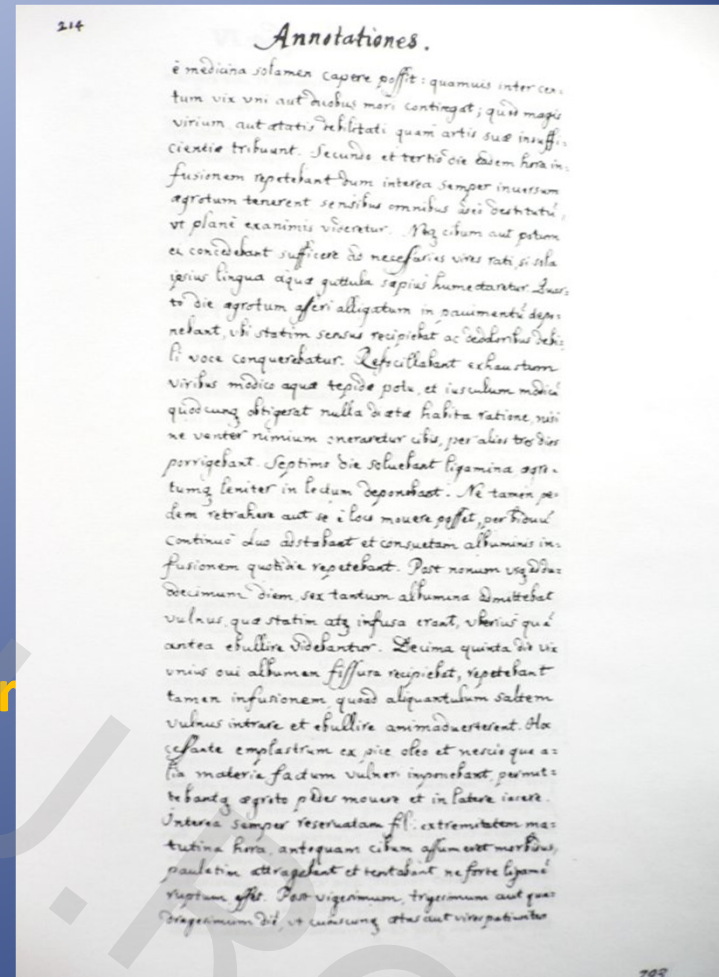 214
Annotationes.
è medicina solamen capere possit: quamuis inter cen=
tum vix vni aut duobus mori contingat; quod magis
virium aut ætatis debilitati quam artis suæ insuffi=
cientiæ tribuunt. Secundo et tertio die eadem hora in=
fusionem repetebant dum interea semper inuersum
ægrotum tenerent sensibus omnibus destitutū,
vt planè exanimis videretur. Neq cibum aut potum
ei concedebant sufficere ad necessarias vires rati, si sola
ipsius lingua aquæ guttula sæpius humectaretur. Quar=
to die ægrotum asseri alligatum in pauimentū depo=
nebant, vbi statim sensus recipiebat ac de doloribus debi=
li voce conquerebatur. Refocillabant exhaustum
viribus modico aquæ tepidæ potu, et iusculum modicū
quodcunq obtigerat nulla diætæ habita ratione, nisi
ne venter nimium oneraretur cibis, per alios tres dies
porrigebant. Septimo die soluebant ligamina ægro=
tumq leniter in lectum deponebant. Ne tamen pe=
dem retrahere aut se è loco mouere posset, per biduū
continuò duo adstabant et consuetam albuminis in=
fusionem quotidie repetebant. Post nonum vsq ad du=
odecimum diem, sex tantum albumina admittebat
vulnus, quæ statim atq infusa erant, vberius quā
antea ebullire videbantur. Decima quinta die vix
vnius oui albumen fissura recipiebat, repetebant
tamen infusionem, quoad aliquantulum saltem
vulnus intrare et ebullire animaduerterent. Hoc
cessante emplastrum ex pice oleo et nescio qua a=
lia materia factum vulneri imponebant, permit=
tebantq ægroto pedes mouere et in latere iacere.
Interea semper reseruatam fili extremitatem ma=
tutina hora, antequam cibum assumeret morbidus,
paulatim attrahebant et tentabant ne forte ligamē
ruptum esset. Post vigesimum, trigesimum aut qua=
dragesimum diē, vt cuiuscunq ætas aut vires patiuntur
293